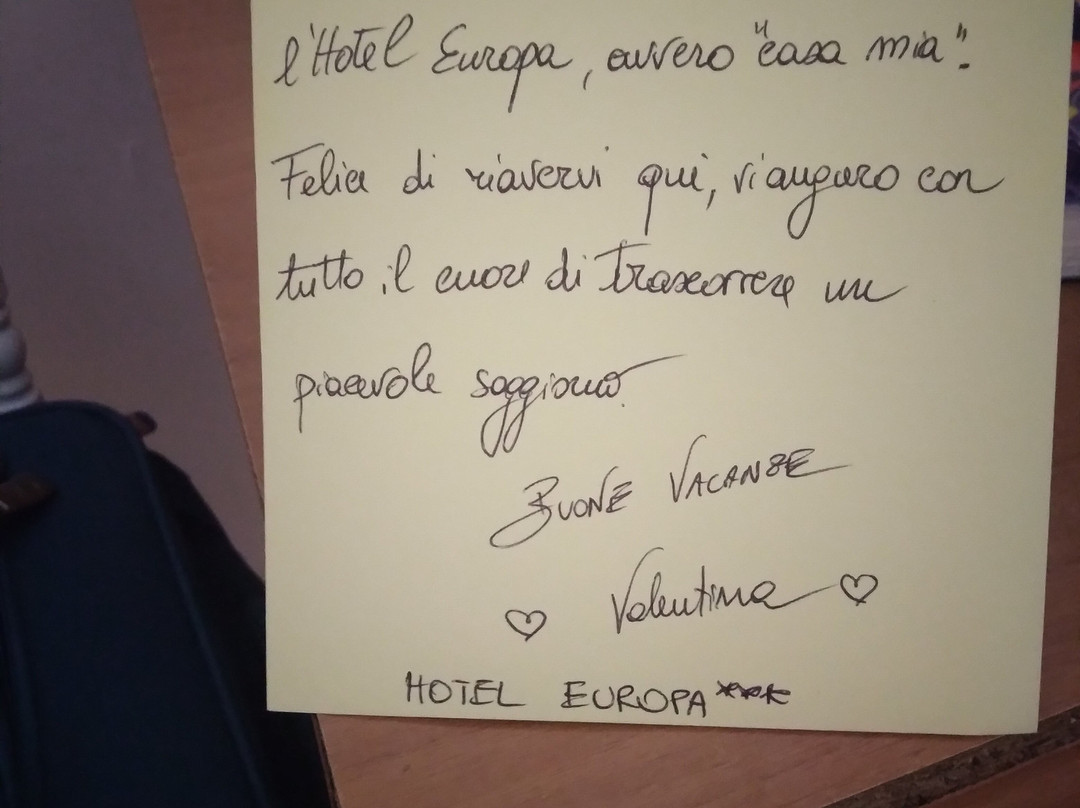 l'Hotel Europa, ovvero "casa mia".
Felice di riavervi qui, vi auguro con
tutto il cuore di trascorrere un
piacevole soggiorno.
BUONE VACANZE
♡ Valentina ♡
HOTEL EUROPA***